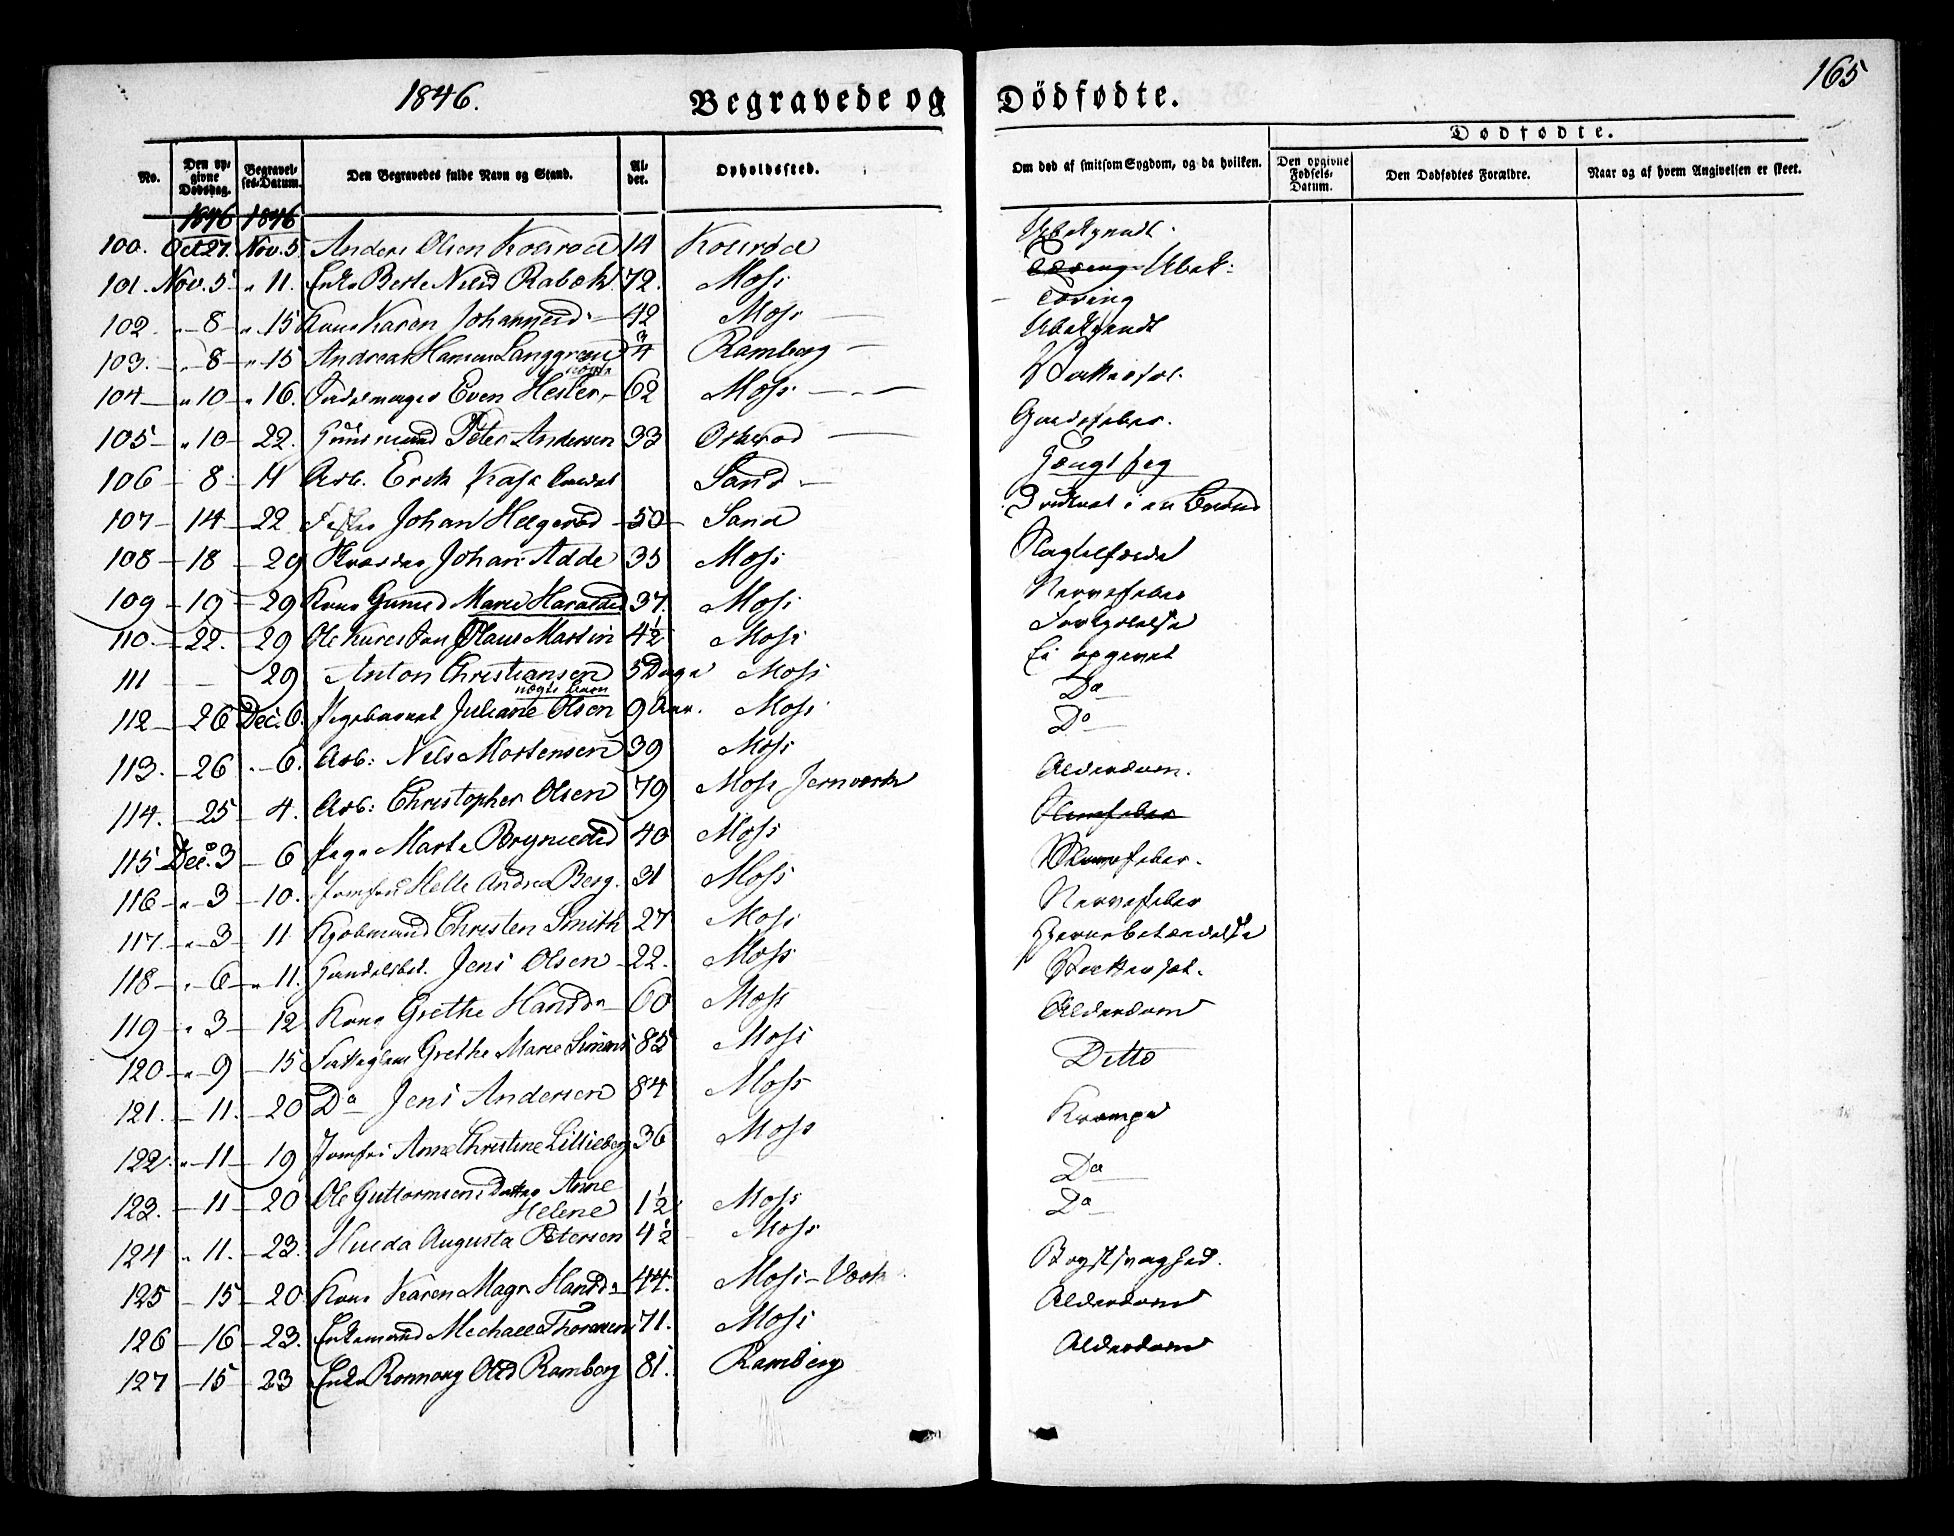 1846.
Begravede og Dödfødte.
165
No. Den opgivne Dødsdag. Begravelses-Datum. Den Begravedes fulde Navn og Stand. Alder. Opholdssted. Om død af smitsom Sygdom, og da hvilken. Dødfødte. Den opgivne Fødsels-Datum. Den Dødfødtes Forældre. Naar og af hvem Angivelsen er skeet.
1846 1846
100. Oct 27. Nov. 5. Anders Olsen 14 Ubekjendt.
101. Nov. 5. " 11. Enke Berte Nilsd Rabæk 72. Moss Ubek:
102. " 8 " 15 Kone Karen Johannesd. 42 Moss Tæring
103. " 8 " 15 Andreas Hansen Langgren 3/4 Ramberg Ubekjendt
104 " 10 " 16. Even Hesler 62 Moss
105 " 10 22. Huusmand Peter Andersen 33 Orkerød
106 8 11 Arb. Erik Sand
107 14 22 Johan Helgerød 50 Sand Druknet i en Brønd
108 18 29 Skræder Johan Adde 35 Moss Slagtilfælde
109 19 29 Kone Gunild Marie Haraldsd 37. Moss Nervefeber
110. 22. 29 Ole Kures Søn Olaus Martin 4 1/2 Moss Forkjølelse
111 29 Anton Christiansen 5 Dage Moss Ei opgivet
uægte barn
112 26 Dec. 6. Pigebarnet Juliane Olsen 9 Aar. Moss Do
113. 26 " 6. Arb: Nils Mortensen 39 Moss Do
114. 25 4. Arb: Christopher Olsen 79 Moss Jernværk Alderdom.
115 Dec. 3 6 Pige Marte Brynildsd 40 Moss
116 " 3 10. Jomfru Helle Andrea Berg. 31 Moss
117. " 3 11 Kjøbmand Christen Smith 27 Moss Nervefeber
118 " 6 " 11. Handelsbet. Jens Olsen 22. Moss Hjernebetændelse
119 " 3 12 Kone Grethe Hansd 60 Moss
120 " 9 15 Fattiglem Grethe Marie Simens 85 Moss Alderdom
121. 11. 20 Do Jens Andersen 84 Moss Ditto
122. " 11 19 Jomfru Anne Christine Lillieberg 36 Moss Krampe
123. 11 20 Ole Guttormsens Datter Anne Helene 1 1/2 Moss Do
124 " 11. 23. Hulda Augusta Petersen 4 1/2 Moss Do
125 15 20 Kone Karen Magr. Hansd. 44. Moss Værk Brystsvaghed.
126 16 23. Enkemand Mechael Thoresen 71. Moss Alderdom
127 15 23 Enke Ronnaug Olsd Ramberg 81. Ramberg Alderdom